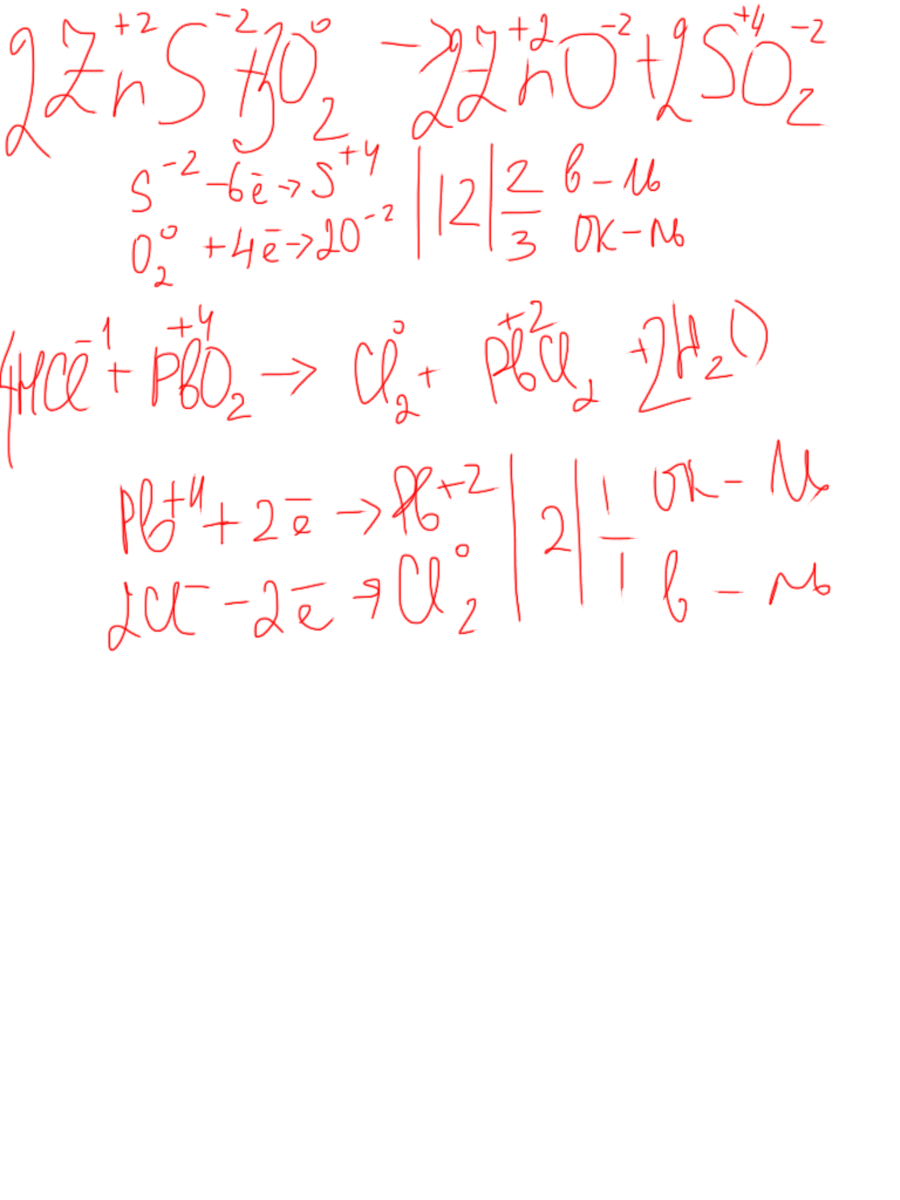 2Zn⁺²S⁻² + 3O₂⁰ → 2Zn⁺²O⁻² + 2S⁺⁴O₂⁻²
S⁻² - 6ē → S⁺⁴ | 12 | 2 в-ль
O₂⁰ + 4ē → 2O⁻² | 12 | 3 ок-ль
4HCl⁻¹ + Pb⁺⁴O₂ → Cl₂⁰ + Pb⁺²Cl₂ + 2H₂O
Pb⁺⁴ + 2ē → Pb⁺² | 2 | 1 ок-ль
2Cl⁻ - 2ē → Cl₂⁰ | 2 | 1 в-ль